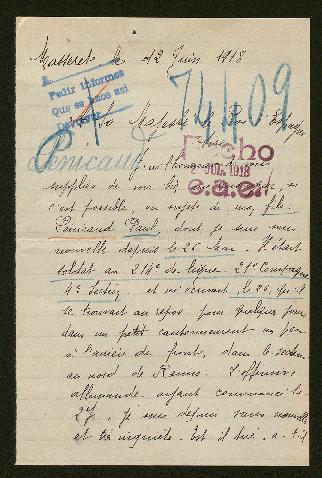 Masseret le 12 Juin 1918
Pedir informes
Que se hace asi
741109
A Sa Majesté le Roi d'Espagne
Sire
Penicaud
Hecho
8 JUL. 1918
C.a.e.
J'ai l'honneur de vous
supplier de me
c'est possible au sujet de mon fils
Penicaud Paul, dont je suis sans
nouvelle depuis le 26 Mai. Il était
soldat au 214e de ligne 21e Compagnie
4e Section et m'écrivait le 25 qu'il
se trouvait au repos pour quelques jours
dans un petit cantonnement un peu
à l'arrière du front, dans le secteur
au nord de Reims. L'offensive
allemande ayant commencé le
27, je suis depuis sans nouvelle
et très inquiète. Est il tué, a-t-il